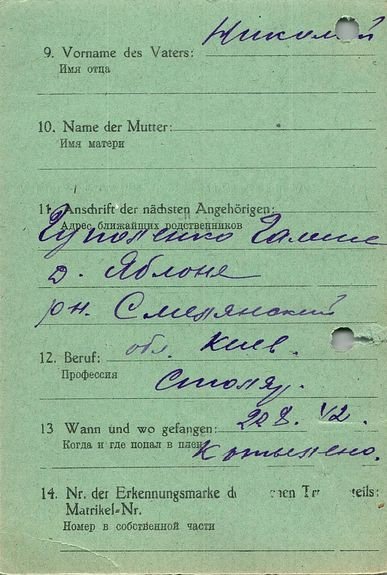 Николай
9. Vorname des Vaters:
Имя отца
10. Name der Mutter:
Имя матери
11. Anschrift der nächsten Angehörigen:
Адрес ближайших родственников
Галине
д. Яблоне
рн. Смелянский
обл. Киев.
12. Beruf:
Профессия
Столяр.
13 Wann und wo gefangen: 22 8. 42.
Когда и где попал в плен
14. Nr. der Erkennungsmarke
Matrikel-Nr.
Номер в собственной части